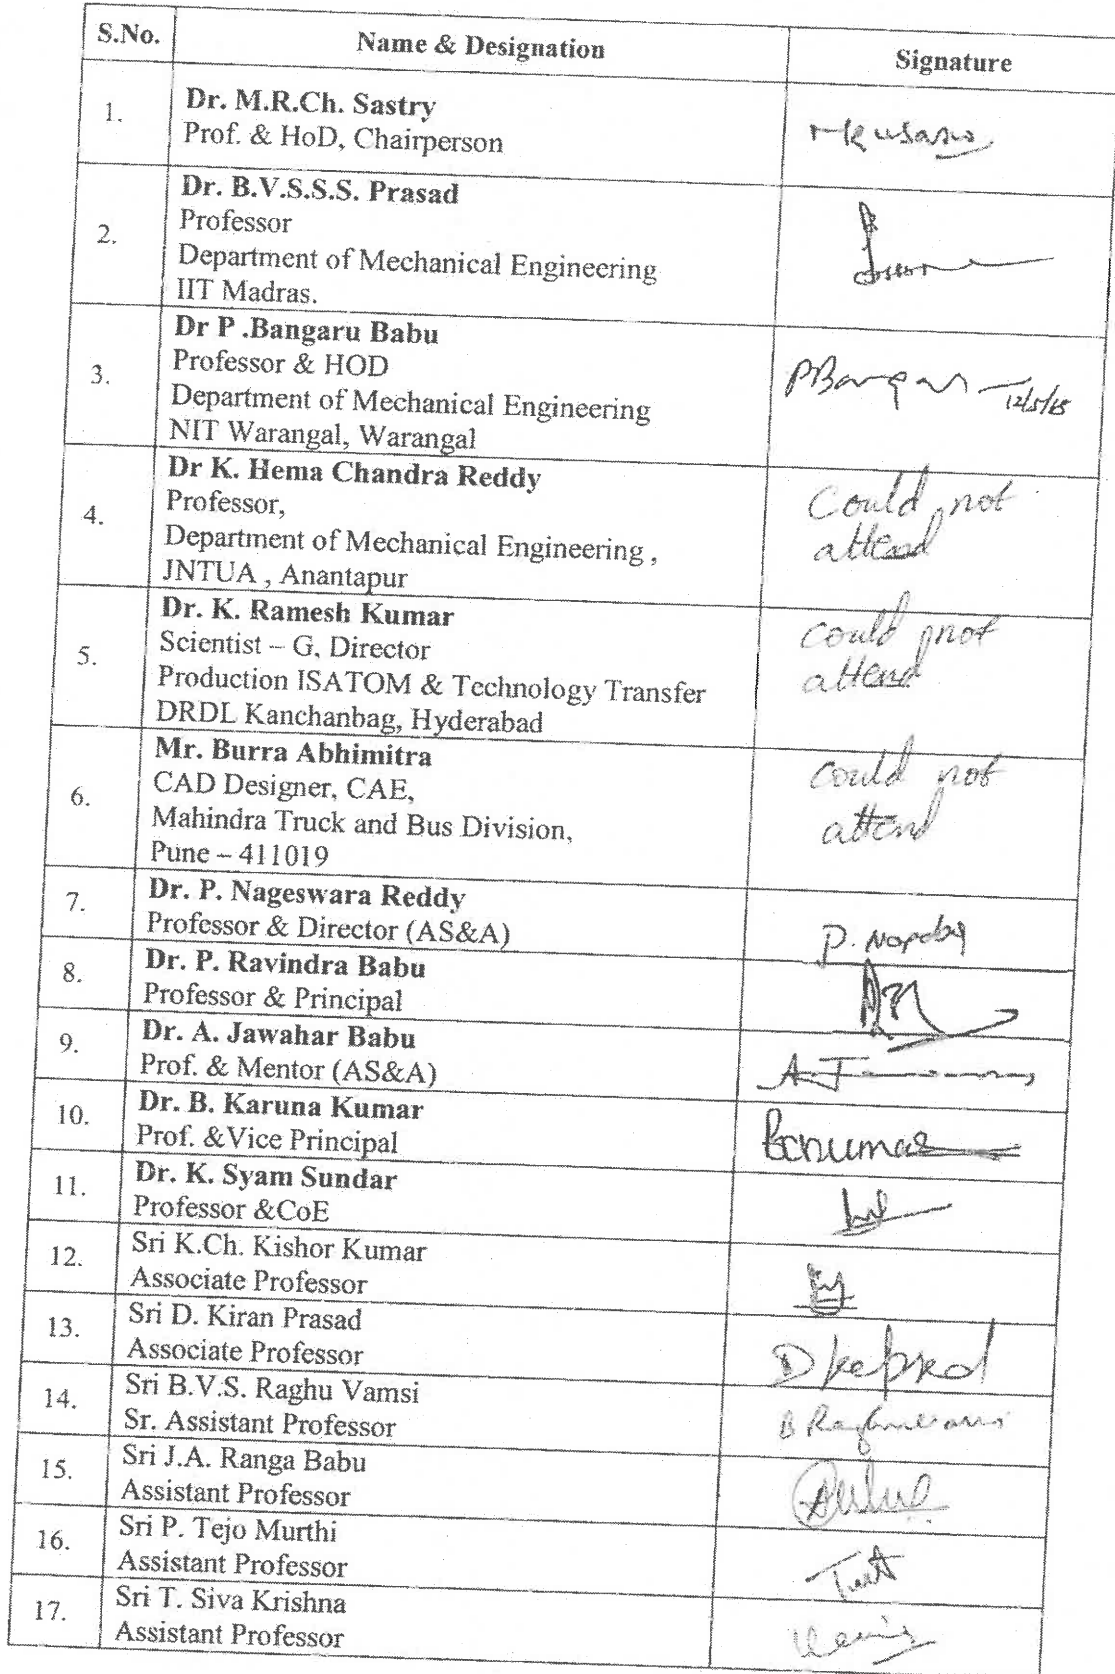 S.No. Name & Designation Signature
1. Dr. M.R.Ch. Sastry
Prof. & HoD, Chairperson
2. Dr. B.V.S.S.S. Prasad
Professor
Department of Mechanical Engineering
IIT Madras.
3. Dr P .Bangaru Babu
Professor & HOD
Department of Mechanical Engineering
NIT Warangal, Warangal
12/5/15
4. Dr K. Hema Chandra Reddy
Professor,
Department of Mechanical Engineering ,
JNTUA , Anantapur
Could not
attend
5. Dr. K. Ramesh Kumar
Scientist – G, Director
Production ISATOM & Technology Transfer
DRDL Kanchanbag, Hyderabad
could not
attend
6. Mr. Burra Abhimitra
CAD Designer, CAE,
Mahindra Truck and Bus Division,
Pune – 411019
could not
attend
7. Dr. P. Nageswara Reddy
Professor & Director (AS&A)
8. Dr. P. Ravindra Babu
Professor & Principal
9. Dr. A. Jawahar Babu
Prof. & Mentor (AS&A)
10. Dr. B. Karuna Kumar
Prof. &Vice Principal
11. Dr. K. Syam Sundar
Professor &CoE
12. Sri K.Ch. Kishor Kumar
Associate Professor
13. Sri D. Kiran Prasad
Associate Professor
14. Sri B.V.S. Raghu Vamsi
Sr. Assistant Professor
15. Sri J.A. Ranga Babu
Assistant Professor
16. Sri P. Tejo Murthi
Assistant Professor
17. Sri T. Siva Krishna
Assistant Professor